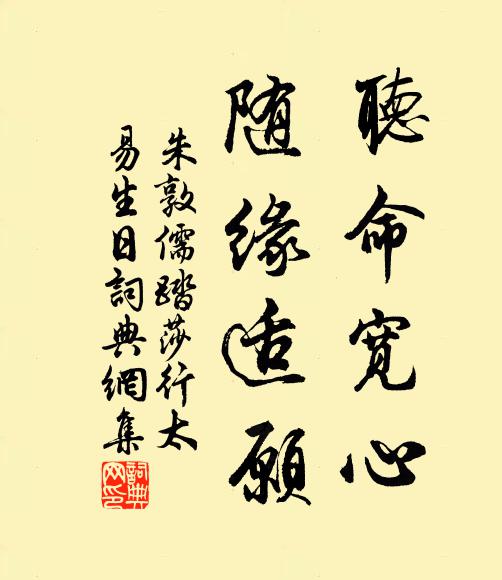 聽命寬心
随緣适願
朱敦儒踏莎行太
易生日詞典網集
詞典
网印